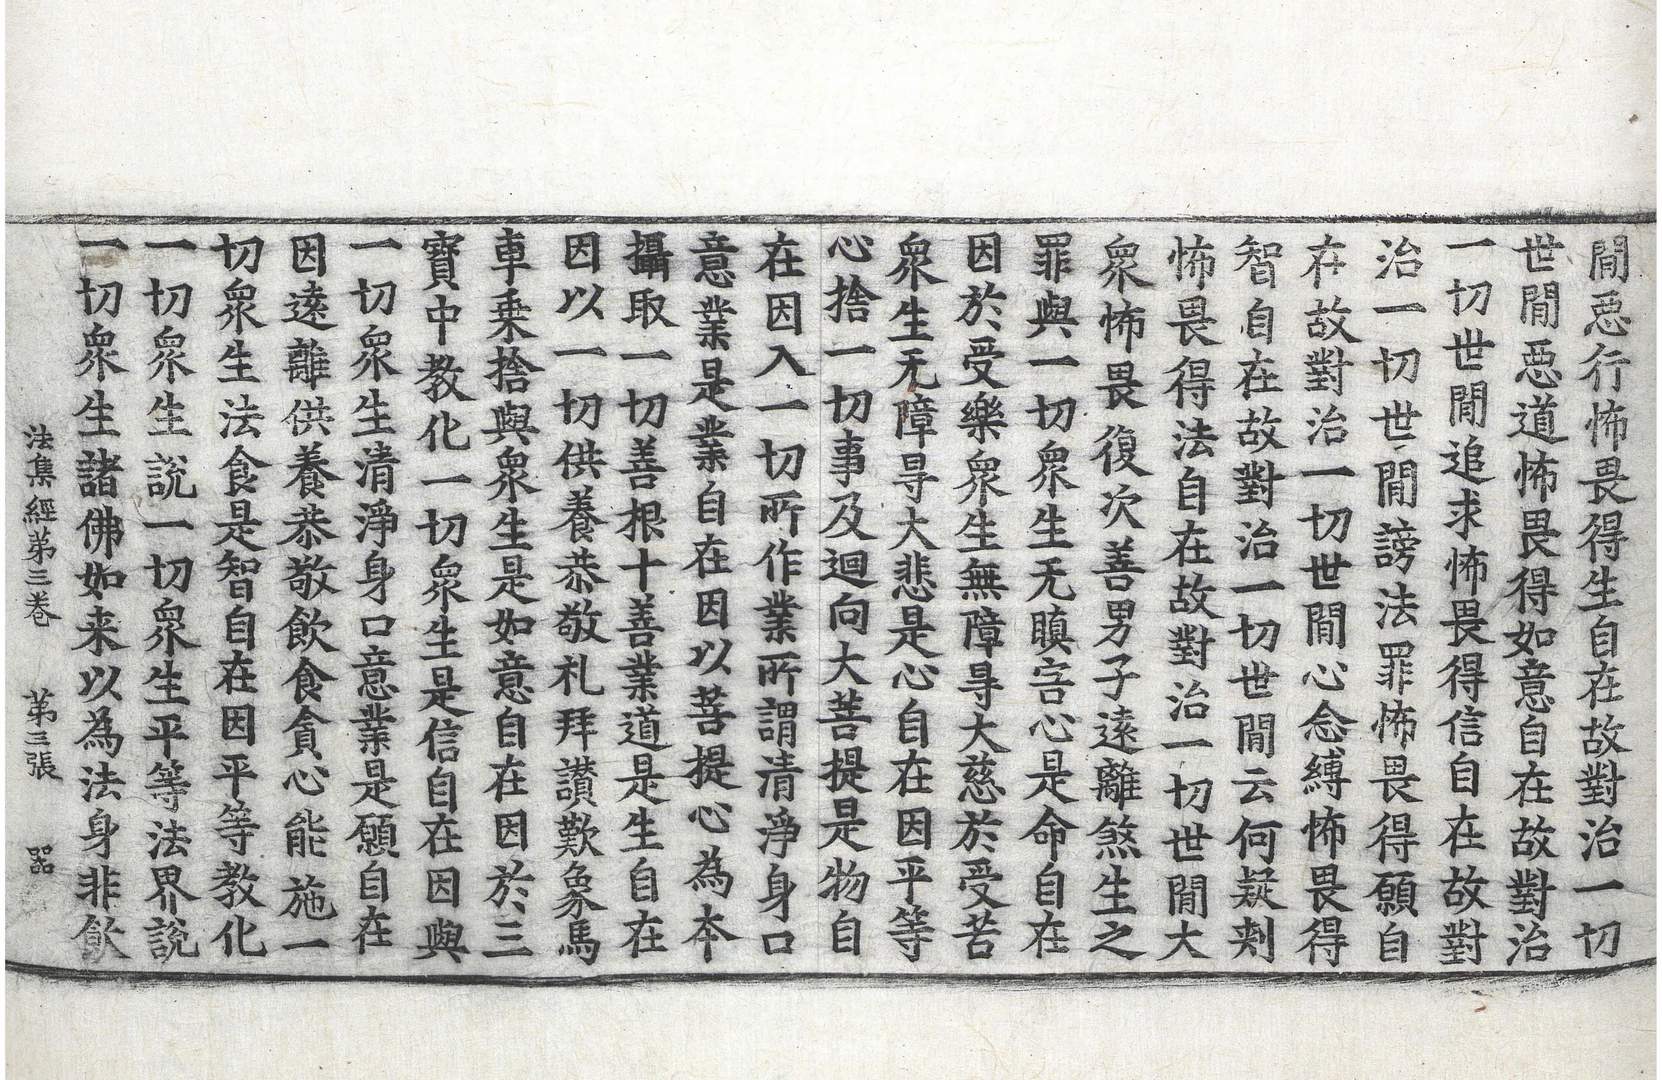 間惡行怖畏得生自在故對治一切
世間惡道怖畏得如意自在故對治
一切世間追求怖畏得信自在故對
治一切世間謗法罪怖畏得願自
在故對治一切世間心念縛怖畏得
智自在故對治一切世間云何疑刾
怖畏得法自在故對治一切世間大
衆怖畏復次善男子遠離煞生之
罪與一切衆生无瞋害心是命自在
因於受樂衆生無障㝵大慈於受苦
衆生无障㝵大悲是心自在因平等
心捨一切事及迴向大菩提是物自
在因入一切所作業所謂清淨身口
意業是業自在因以菩提心為本
攝取一切善根十善業道是生自在
因以一切供養恭敬礼拜讃歎象馬
車乗捨與衆生是如意自在因於三
寶中教化一切衆生是信自在因與
一切衆生清淨身口意業是願自在
因遠離供養恭敬飲食貪心能施一
切衆生法食是智自在因平等教化
一切衆生說一切衆生平等法界說
一切衆生諸佛如来以為法身非飲
法集經第三卷 第三張 器